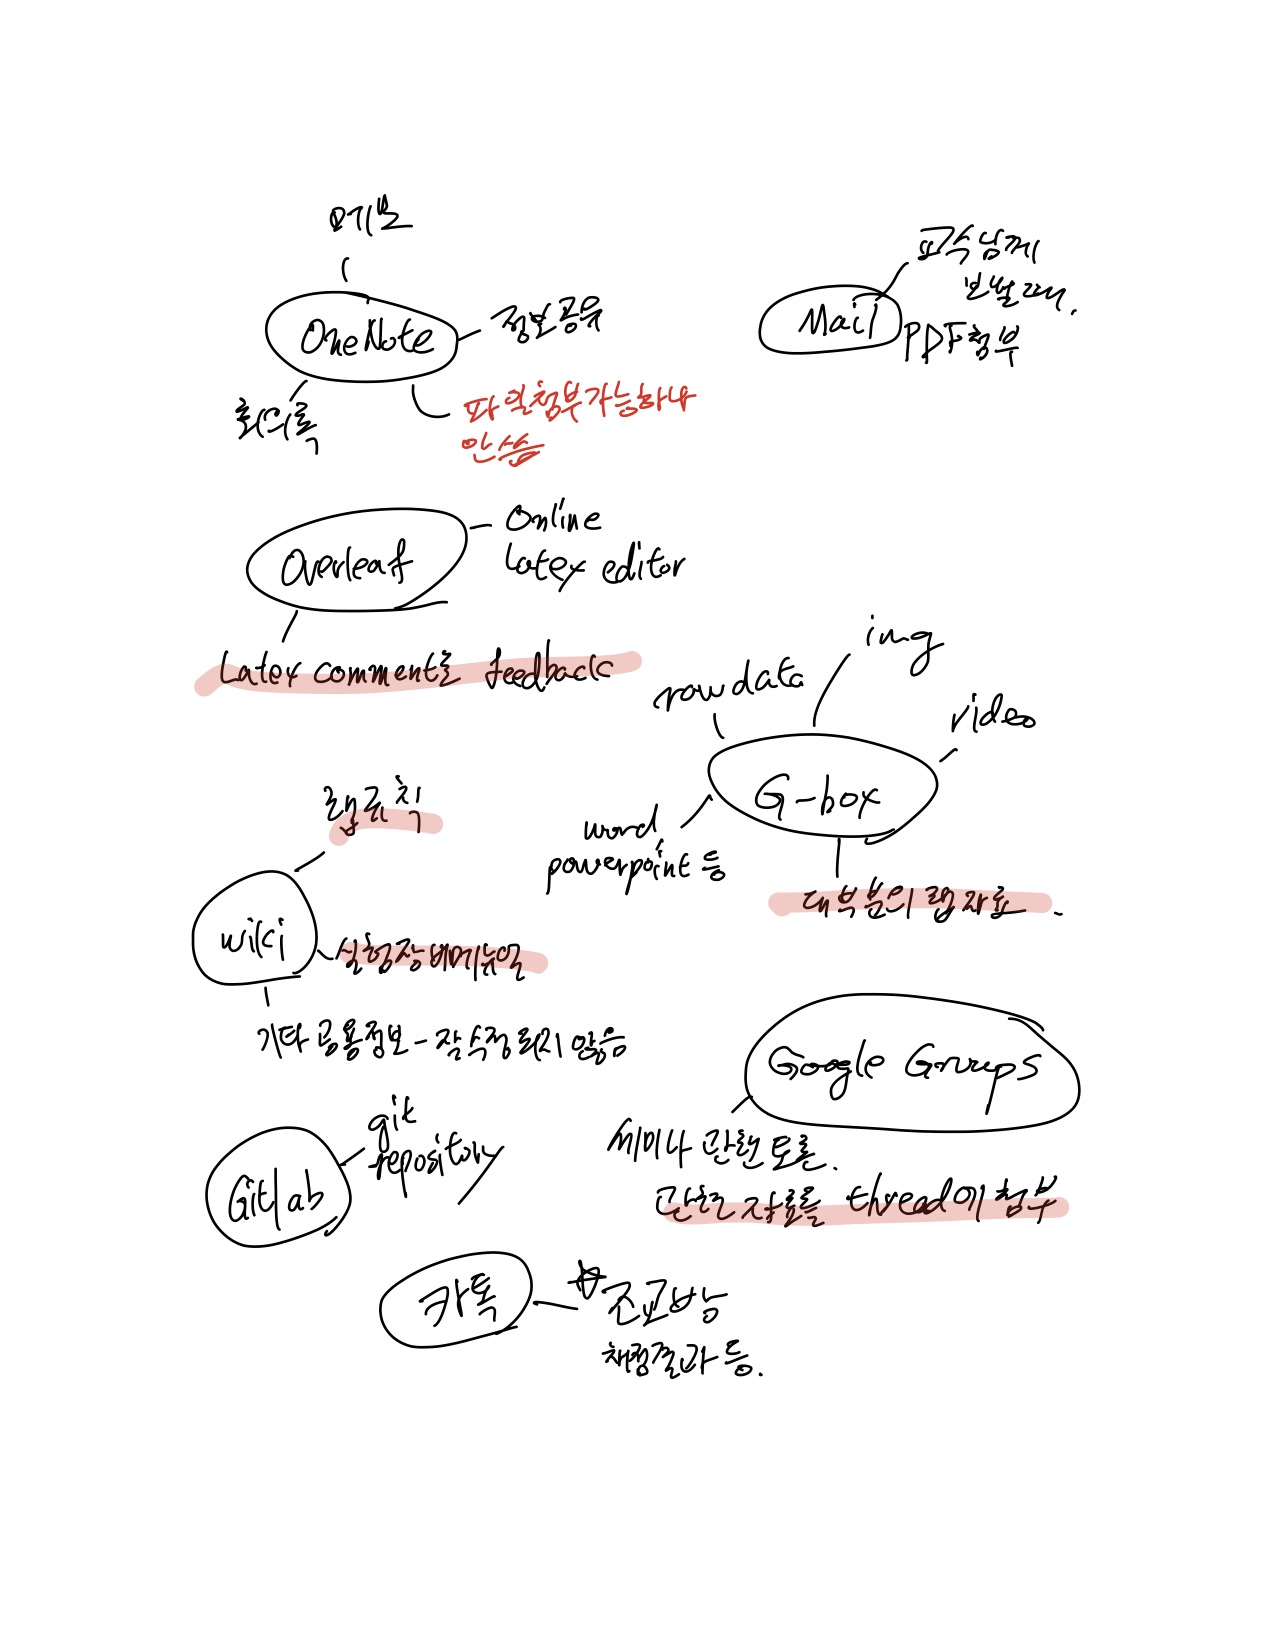 메모
OneNote
정보공유
회의록
파일첨부가능하나
안씀
교수님께
보낼때.
Mail
PDF첨부
Overleaf
Online
latex editor
Latex comment로 feedback
img
raw data
video
G-box
word,
powerpoint 등
대부분의 랩자료.
랩규칙
wiki
실험장비메뉴얼
기타 공용정보 - 잘 수정되지 않음
Google Groups
세미나 관련 토론.
관련 자료를 thread에 첨부
git
repository
Gitlab
카톡
조교방
채점결과 등.